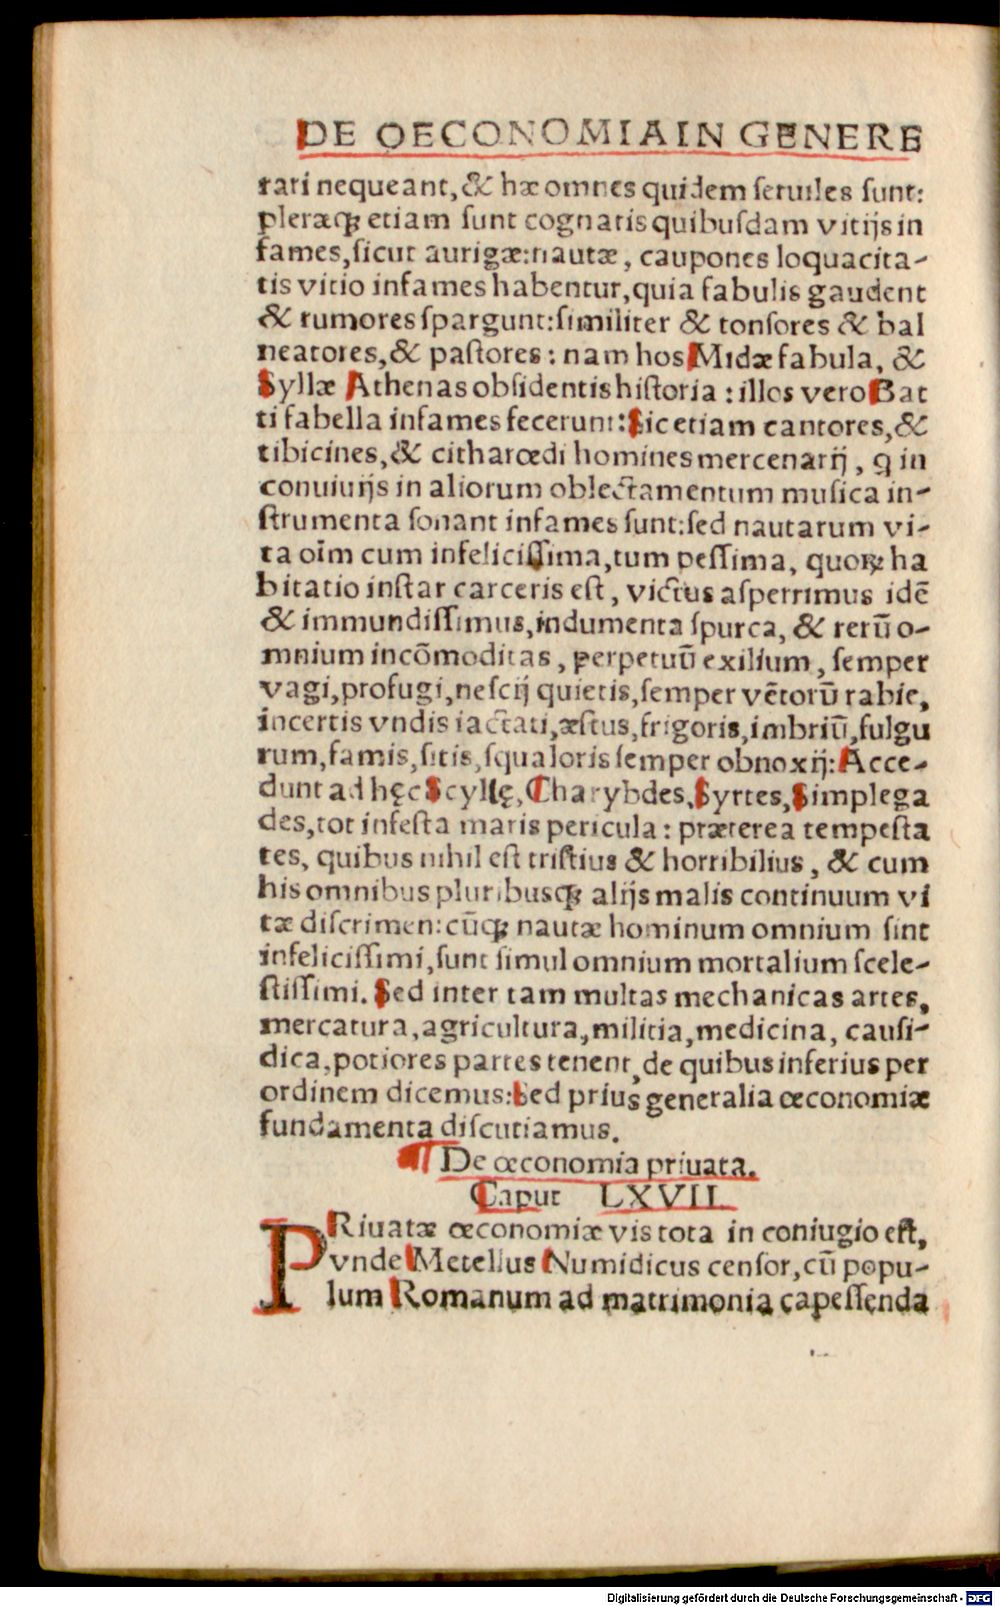 DE OECONOMIA IN GENERE
rari nequeant, & hæ omnes quidem seruiles sunt:
pleræq́ꝫ etiam sunt cognatis quibusdam vitijs in
fames, sicut aurigæ: nautæ, caupones loquacita-
tis vitio infames habentur, quia fabulis gaudent
& rumores spargunt: similiter & tonsores & bal
neatores, & pastores: nam hos Midæ fabula, &
Syllæ Athenas obsidentis historia: illos vero Bat
ti fabella infames fecerunt: Sic etiam cantores, &
tibicines, & citharœdi homines mercenarij, q in
conuiuijs in aliorum oblectamentum musica in-
strumenta sonant infames sunt: sed nautarum vi-
ta oim̄ cum infelicissima, tum pessima, quoꝝ ha
bitatio instar carceris est, victus asperrimus idē
& immundissimus, indumenta spurca, & rerū o-
mnium incōmoditas, perpetuū exilium, semper
vagi, profugi, nescij quietis, semper vētorū rabie,
incertis vndis iactati, æstus, frigoris, imbriū, fulgu
rum, famis, sitis, squaloris semper obnoxij: Acce-
dunt ad hęc Scyllę, Charybdes, Syrtes, Simplega
des, tot infesta maris pericula: præterea tempesta
tes, quibus nihil est tristius & horribilius, & cum
his omnibus pluribusqꝫ alijs malis continuum vi
tæ discrimen: cūqꝫ nautæ hominum omnium sint
infelicissimi, sunt simul omnium mortalium scele-
stissimi. Sed inter tam multas mechanicas artes,
mercatura, agricultura, militia, medicina, causi-
dica, potiores partes tenent, de quibus inferius per
ordinem dicemus: Sed prius generalia œconomiæ
fundamenta discutiamus.
¶ De œconomia priuata.
Caput LXVII.
PRiuatæ œconomiæ vis tota in coniugio est,
vnde Metellus Numidicus censor, cū popu-
lum Romanum ad matrimonia capessenda
Digitalisierung gefördert durch die Deutsche Forschungsgemeinschaft - DFG